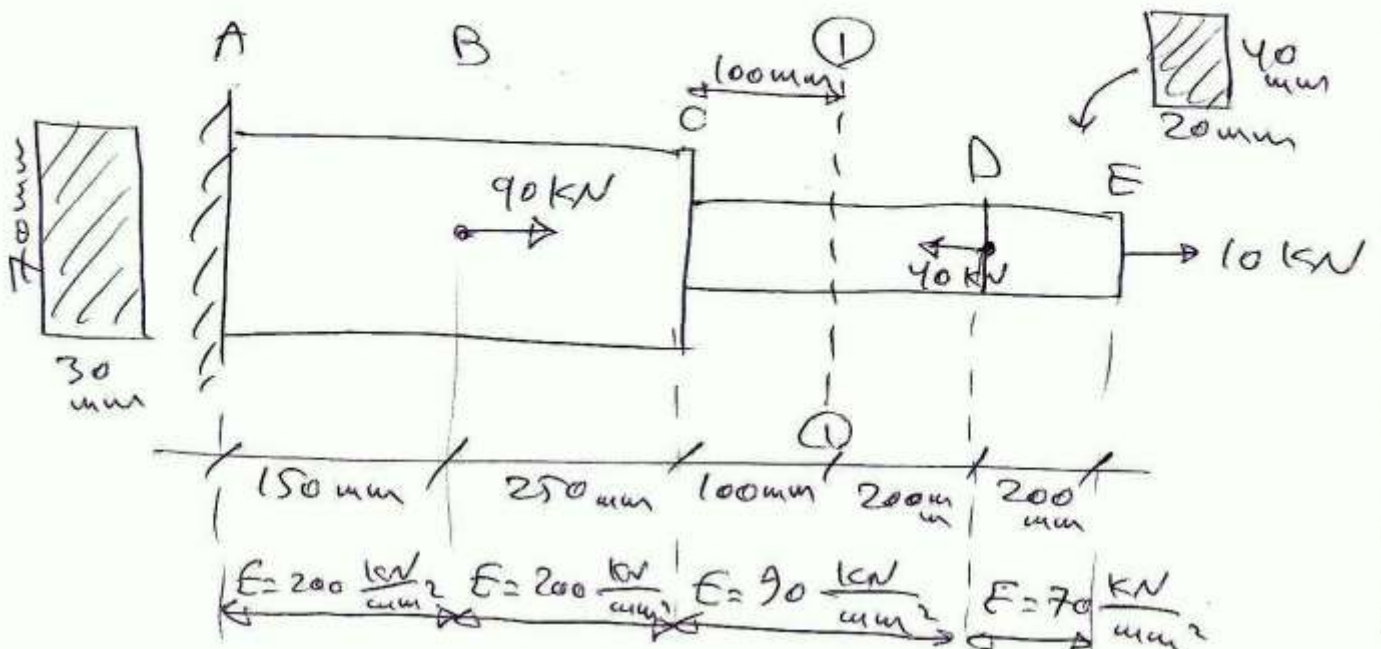 A B 100mm ① 40 mm
20mm
C D E
70mm 90 KN 40 KN 10 KN
30 mm
①
150mm 250mm 100mm 200mm 200 mm
E=200 KN/mm² E=200 KN/mm² E=90 KN/mm² E=70 KN/mm²